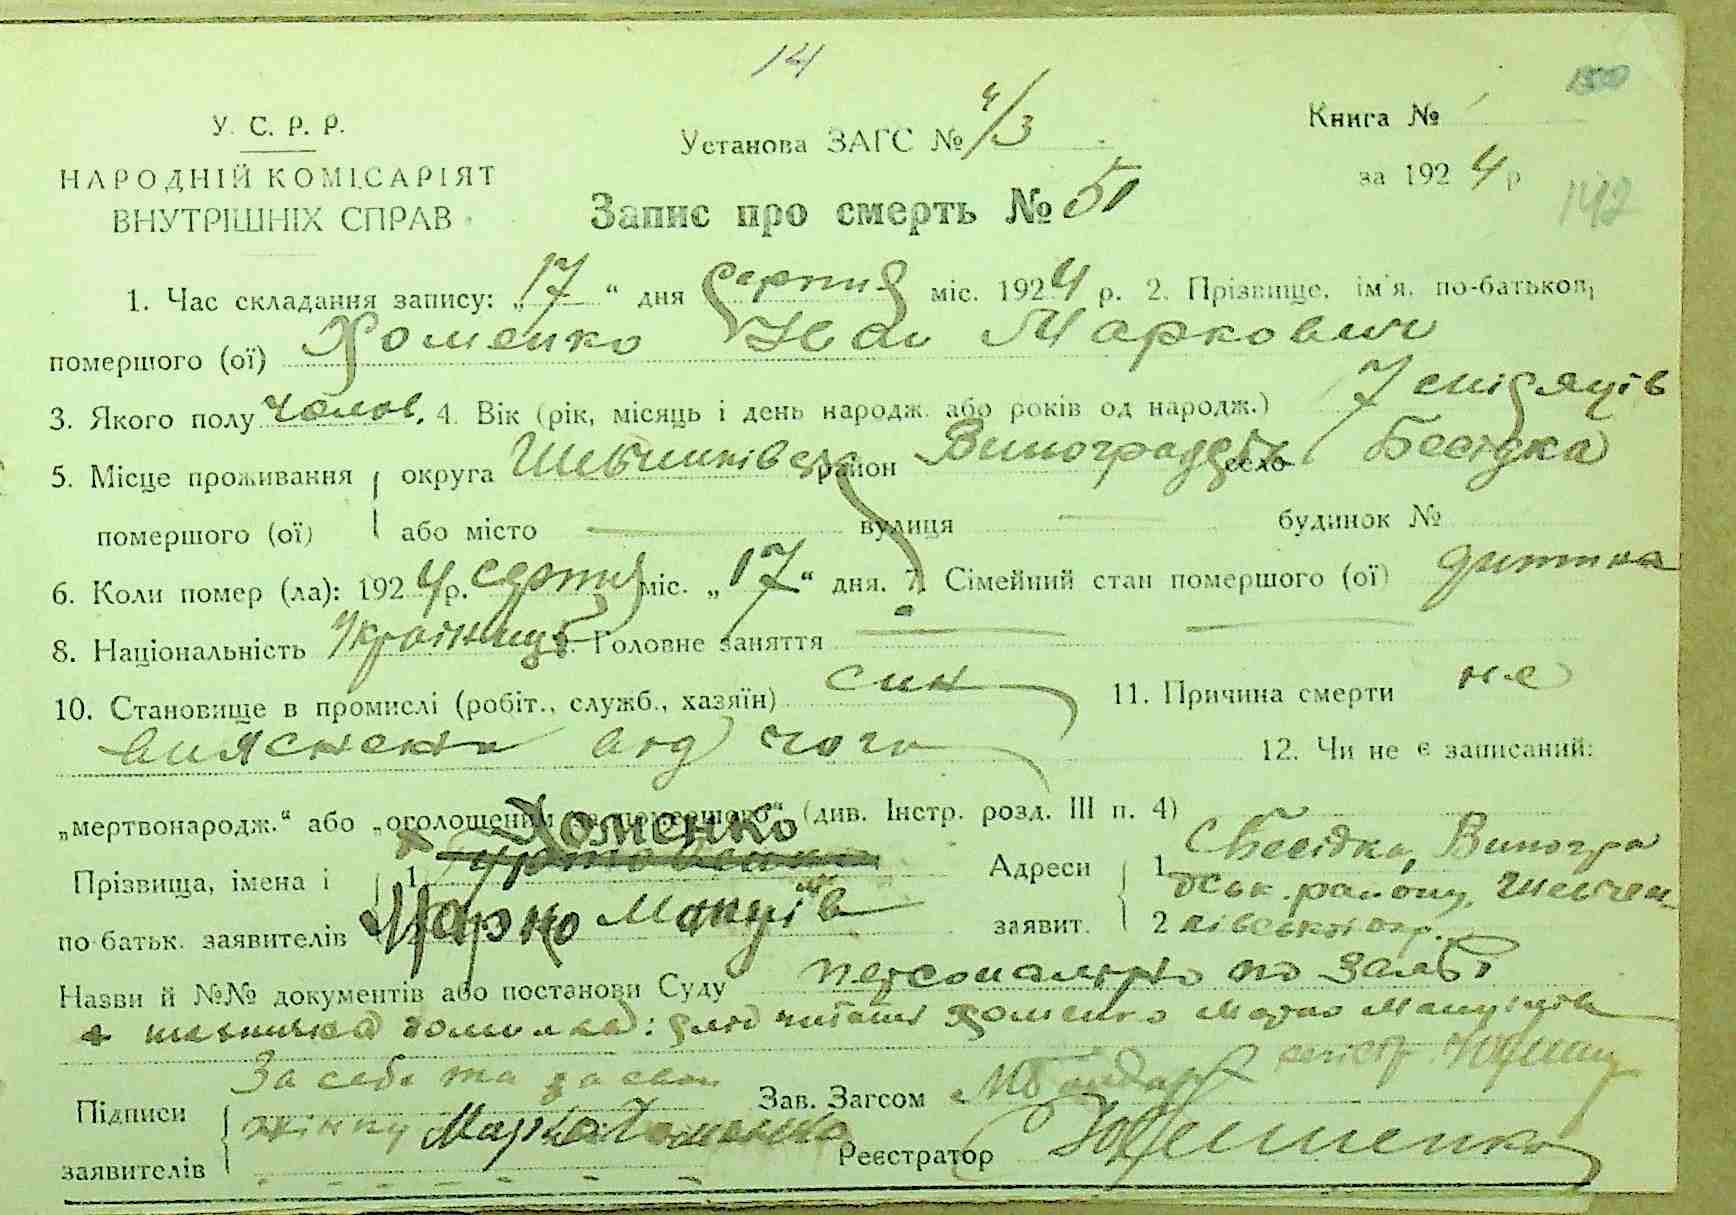 14
150
У. С. Р. Р.
НАРОДНІЙ КОМІСАРІЯТ
ВНУТРІШНІХ СПРАВ
Установа ЗАГС № 4/3
Книга №
за 1924 р
142
Запис про смерть № 51
1. Час складання запису: „17“ дня серпня міс. 1924 р. 2. Прізвище, ім'я, по-батькові
помершого (ої) Хоменко Іван Маркович
3. Якого полу чолов. 4. Вік (рік, місяць і день народж. або років од народж.) 7 місяців
5. Місце проживання округа Шевченківська район Виноградськ село Бесідка
помершого (ої) або місто — вулиця — будинок №
6. Коли помер (ла): 1924 р. серпня міс. „17“ дня. 7. Сімейний стан помершого (ої) дитина
8. Національність Українець Головне заняття —
10. Становище в промислі (робіт., служб., хазяїн) син 11. Причина смерти не
вияснена від чого 12. Чи не є записаний:
„мертвонародж.“ або „оголошеним за померлого“ (див. Інстр. розд. III п. 4)
Хоменко
Прізвища, імена і 1. Адреси 1 с Бесідка, Виногра
по батьк. заявителів Марко Мануїлів заявит. 2 дськ. району, Шевчен-
ківської окр.
Назви й №№ документів або постанови Суду персонально по заяві
Хоменко Марко Мануїлів
За себе та за свою
Підписи жінку Марко Хоменко Зав. Загсом
заявителів Реєстратор